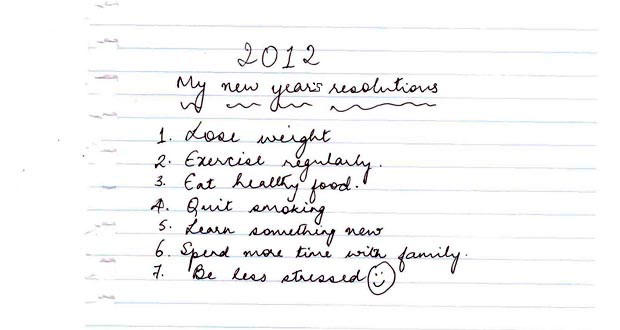 2012
My new year's resolutions
1. Lose weight
2. Exercise regularly.
3. Eat healthy food.
4. Quit smoking
5. Learn something new
6. Spend more time with family.
7. Be less stressed